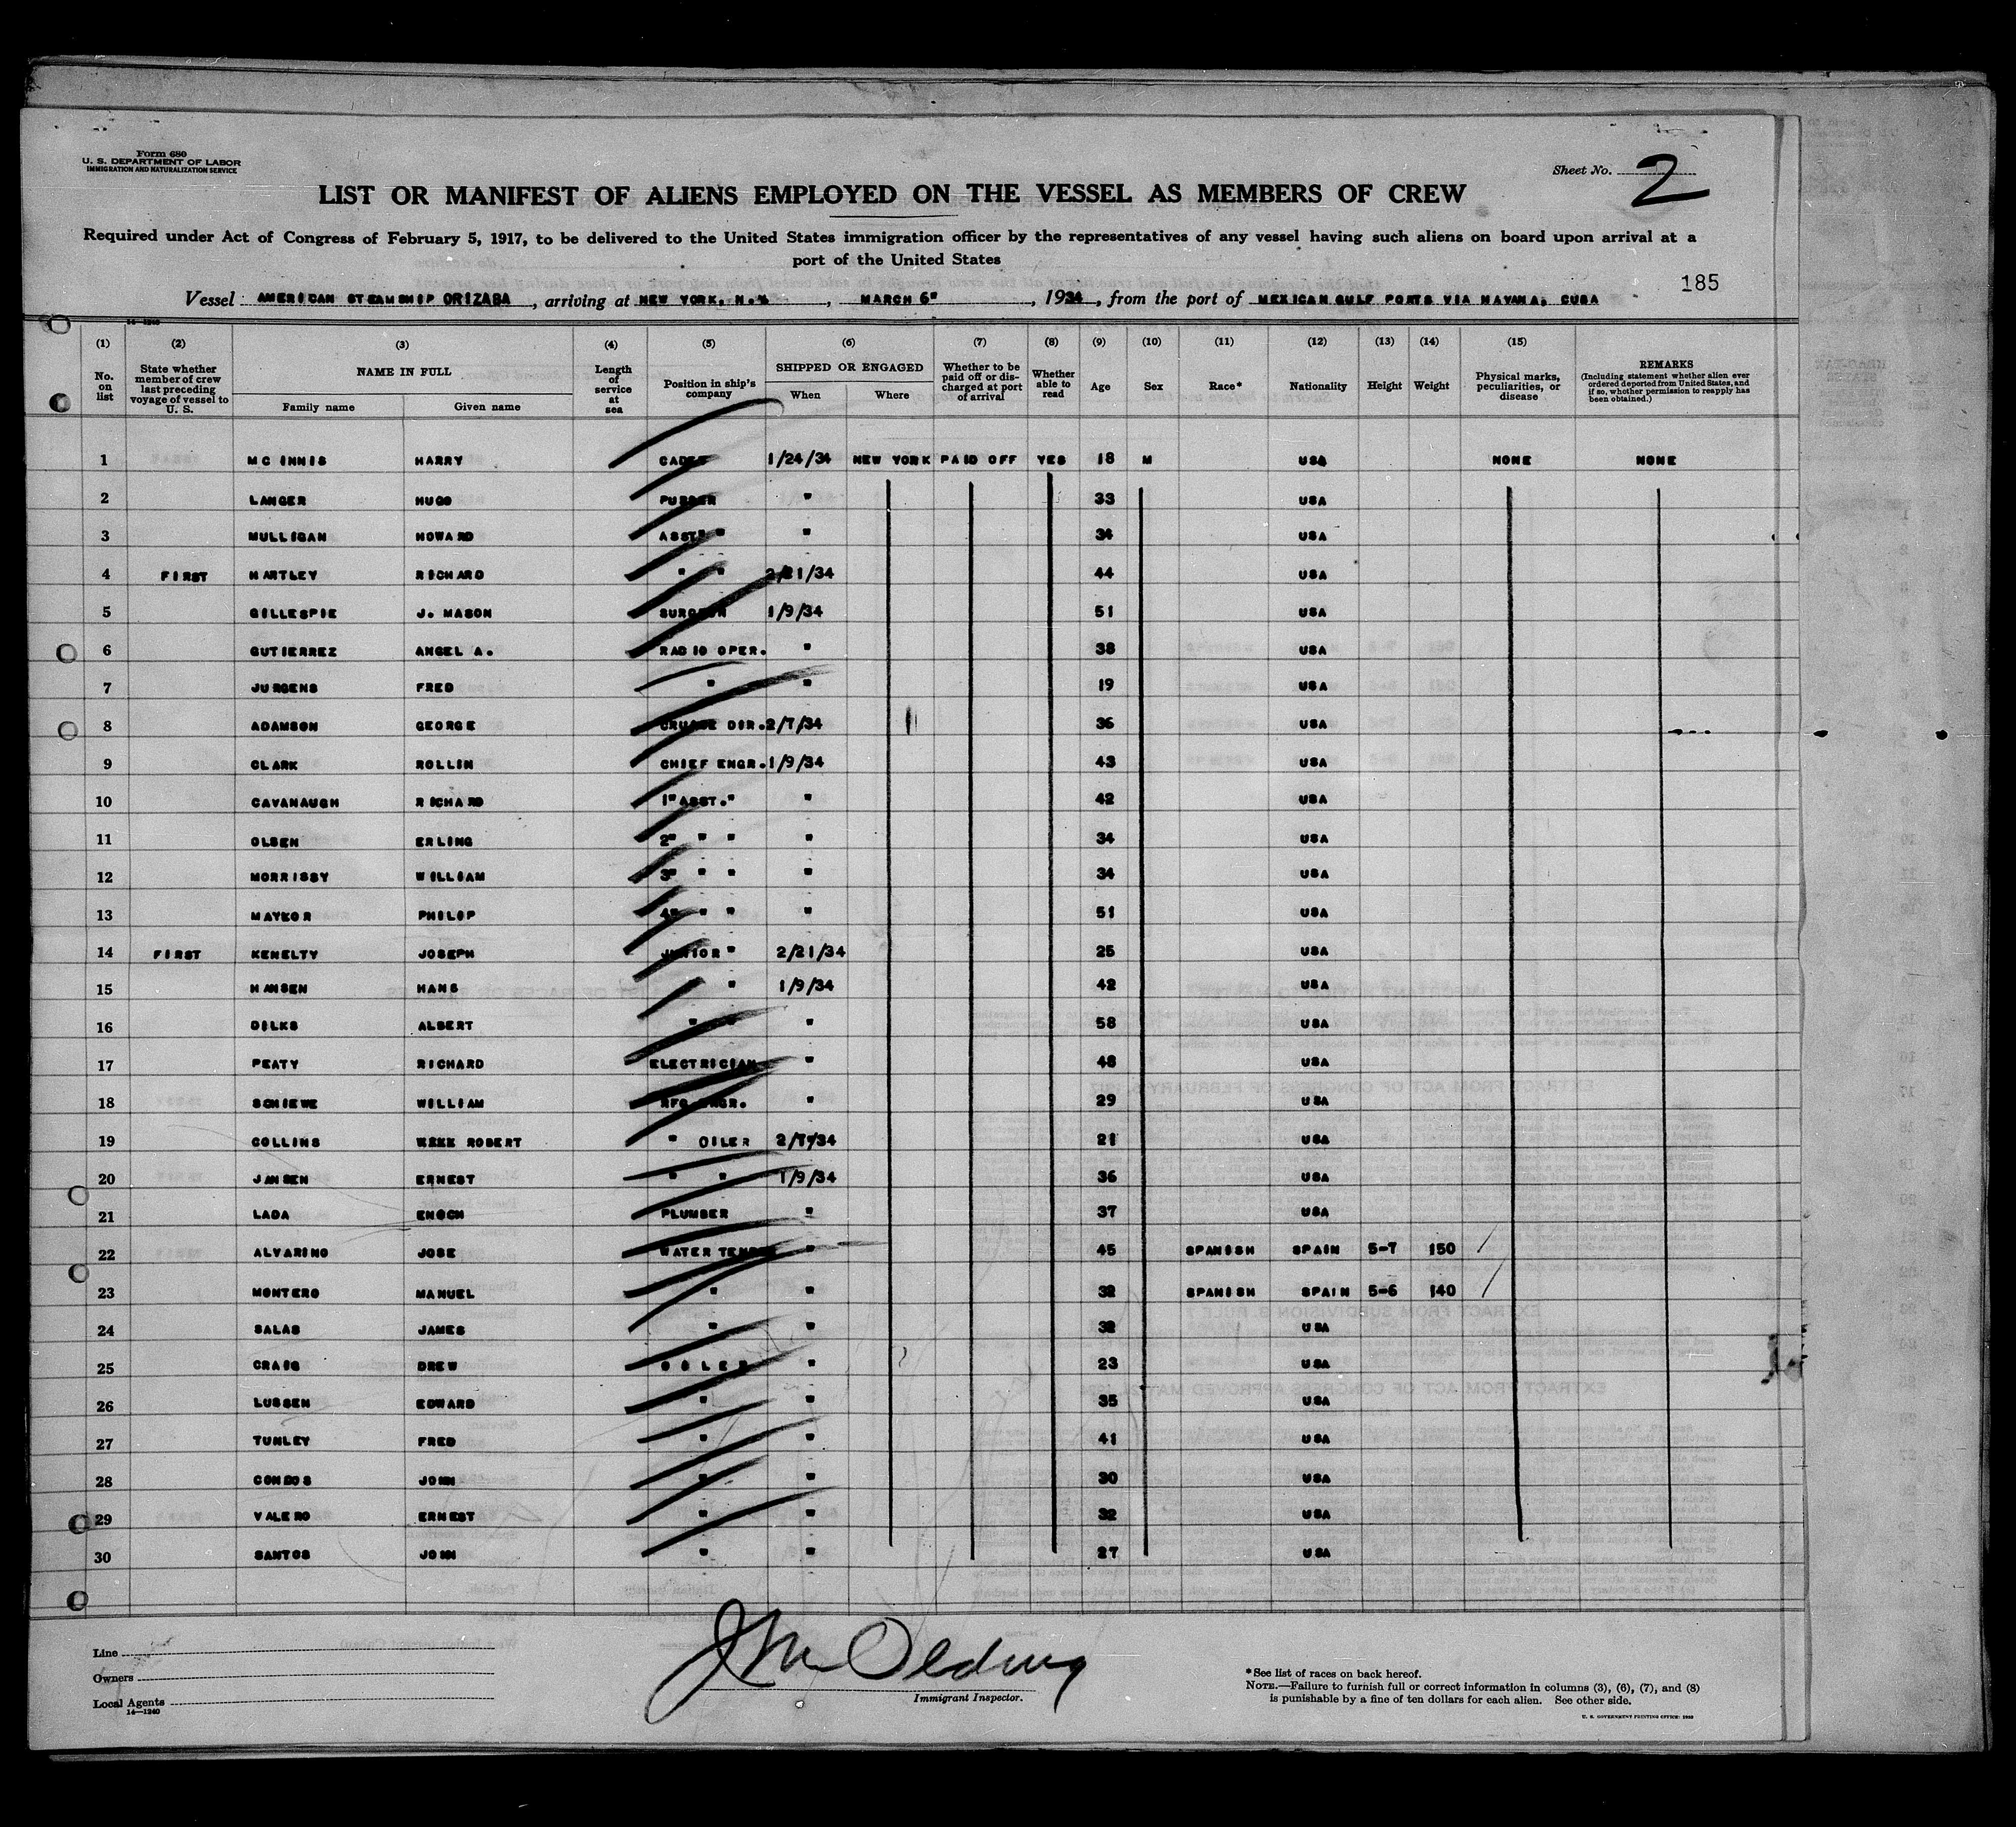 Form 680
U. S. DEPARTMENT OF LABOR
IMMIGRATION AND NATURALIZATION SERVICE
Sheet No. 2
LIST OR MANIFEST OF ALIENS EMPLOYED ON THE VESSEL AS MEMBERS OF CREW
Required under Act of Congress of February 5, 1917, to be delivered to the United States immigration officer by the representatives of any vessel having such aliens on board upon arrival at a
port of the United States
185
Vessel AMERICAN STEAMSHIP ORIZABA, arriving at NEW YORK, N.Y., MARCH 6", 1934, from the port of MEXICAN GULF PORTS VIA HAVANA, CUBA
14—1240
(1) (2) (3) (4) (5) (6) (7) (8) (9) (10) (11) (12) (13) (14) (15)
No. on list
State whether member of crew last preceding voyage of vessel to U. S.
NAME IN FULL
Family name Given name
Length of service at sea
Position in ship's company
SHIPPED OR ENGAGED
When Where
Whether to be paid off or discharged at port of arrival
Whether able to read
Age
Sex
Race*
Nationality
Height
Weight
Physical marks, peculiarities, or disease
REMARKS
(Including statement whether alien ever ordered deported from United States, and if so, whether permission to reapply has been obtained.)
1 MC INNIS HARRY CADET 1/24/34 NEW YORK PAID OFF YES 18 M USA NONE NONE
2 LANGER HUGO PURSER " 33 USA
3 MULLIGAN HOWARD ASST" " " 34 USA
4 FIRST HARTLEY RICHARD " " 2/21/34 44 USA
5 GILLESPIE J. MASON SURGEON 1/9/34 51 USA
6 GUTIERREZ ANGEL A. RADIO OPER. " 38 USA
7 JURGENS FRED " " 19 USA
8 ADAMSON GEORGE CRUISE DIR. 2/7/34 36 USA
9 CLARK ROLLIN CHIEF ENGR. 1/9/34 43 USA
10 CAVANAUGH RICHARD 1"ASST." " 42 USA
11 OLSEN ERLING 2" " " " 34 USA
12 MORRISSY WILLIAM 3" " " " 34 USA
13 MAYKOR PHILIP 4" " " " 51 USA
14 FIRST KENELTY JOSEPH JUNIOR " 2/21/34 25 USA
15 HANSEN HANS " 1/9/34 42 USA
16 DILKS ALBERT " " " 58 USA
17 PEATY RICHARD ELECTRICIAN " 48 USA
18 SCHIEWE WILLIAM RFG ENGR. " 29 USA
19 COLLINS ROBERT " OILER 2/7/34 21 USA
20 JANSEN ERNEST " " 1/9/34 36 USA
21 LADA ENOCH PLUMBER " 37 USA
22 ALVARINO JOSE WATER TENDER " 45 SPANISH SPAIN 5-7 150
23 MONTERO MANUEL " " 32 SPANISH SPAIN 5-6 140
24 SALAS JAMES " " 32 USA
25 CRAIG DREW OILER " 23 USA
26 LUSSEN EDWARD " " 35 USA
27 TUNLEY FRED " " 41 USA
28 CONDOS JOHN " " 30 USA
29 VALERO ERNEST " " 32 USA
30 SANTOS JOHN " " 27 USA
Line
Owners
Local Agents
14—1240
Immigrant Inspector.
*See list of races on back hereof.
NOTE.—Failure to furnish full or correct information in columns (3), (6), (7), and (8)
is punishable by a fine of ten dollars for each alien. See other side.
U. S. GOVERNMENT PRINTING OFFICE: 1933